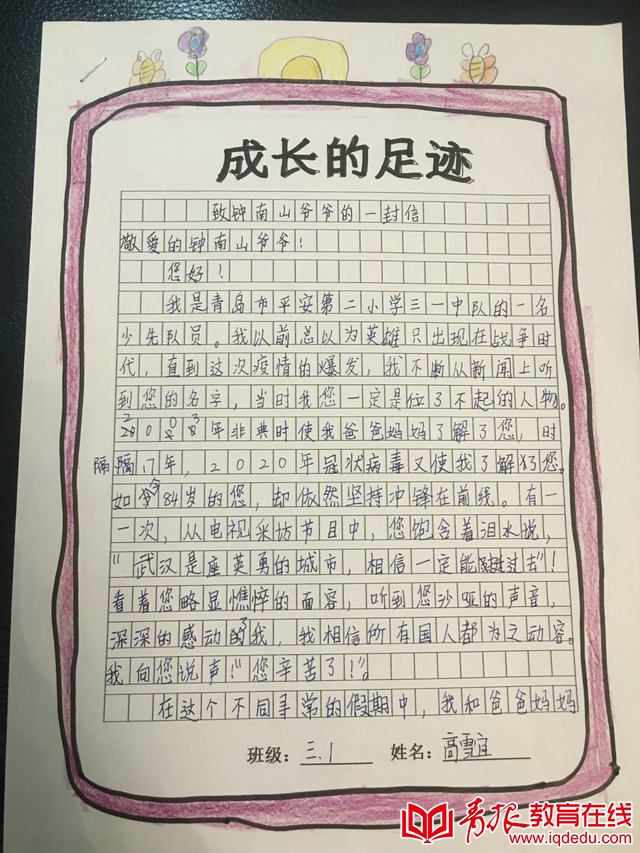 成长的足迹
致钟南山爷爷的一封信
敬爱的钟南山爷爷！
您好！
我是青岛市平安第二小学三一中队的一名
少先队员。我以前总以为英雄只出现在战争时
代，直到这次疫情的爆发，我不断从新闻上听
到您的名字，当时我您一定是位了不起的人物。
2003年非典时使我爸爸妈妈了解了您，时
隔17年，2020年冠状病毒又使我了解了您。
如今84岁的您，却依然坚持冲锋在前线。有一
一次，从电视采访节目中，您饱含着泪水说，
“武汉是座英勇的城市，相信一定能挺过去”！
看着您略显憔悴的面容，听到您沙哑的声音，
深深的感动了我，我相信所有国人都为之动容。
我向您说声！“您辛苦了！”。
在这个不同寻常的假期中，我和爸爸妈妈
班级：三.1 姓名：高雪宜
青报教育在线
www.iqdedu.com